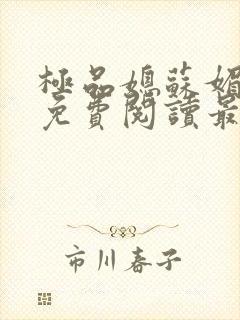 極品媳蘇媚
免費閱讀最
市川春子